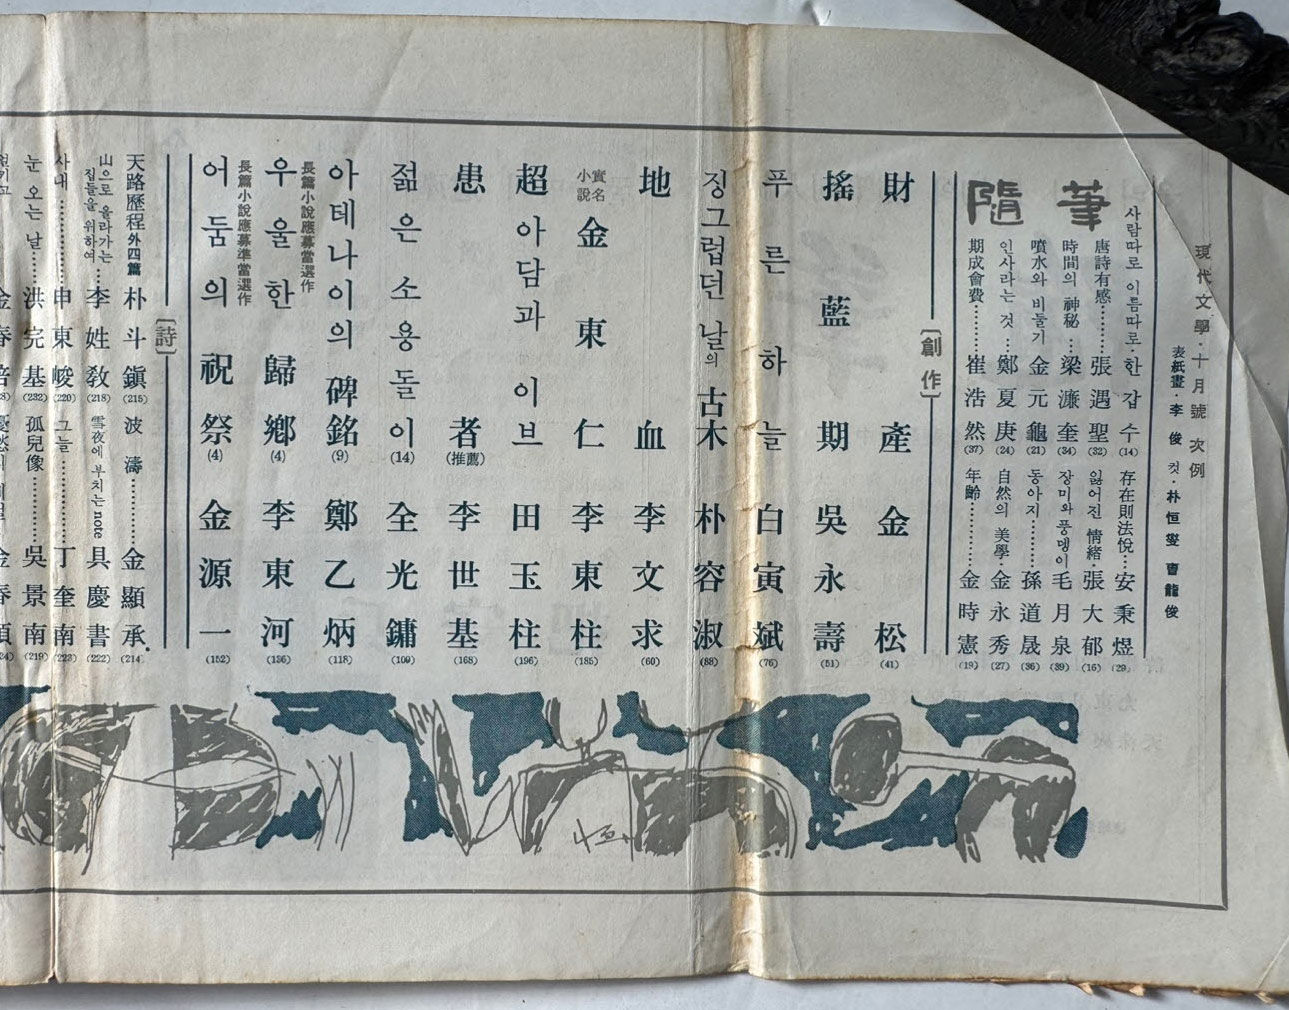 現代文學·十月號 次例
表紙畫·李 俊 컷·朴恒燮 曺龍俊
隨筆
사람따로 이름따로·한갑수(14)
存在則法悅…安秉煜(29)
唐詩有感………張遇聖(32)
잃어진 情緖·張大郁(16)
時間의 神秘…梁濂奎(34)
장미와 풍뎅이 毛月泉(39)
噴水와 비둘기 金元龜(21)
동아지………孫道晟(36)
인사라는 것…鄭夏庚(24)
自然의 美學·金永秀(27)
期成會費………崔浩然(37)
年齡…………金時憲(19)
〔創作〕
財産 金松(41)
搖籃期 吳永壽(51)
푸른하늘 白寅斌(76)
징그럽던 날의 古木 朴容淑(88)
地血 李文求(60)
實名小説 金東仁 李東柱(185)
超아담과 이브 田玉柱(196)
患者(推薦) 李世基(168)
젊은 소용돌이(14) 全光鏞(100)
아테나이의 碑銘(9) 鄭乙炳(118)
長篇小說應募當選作
우울한 歸鄕(4) 李東河(136)
長篇小說應募準當選作
어둠의 祝祭(4) 金源一(152)
〔詩〕
天路歷程 外四篇 朴斗鎭(215)
波濤………金顯承(214)
山으로 올라가는 집들을 위하여…李姓敎(218)
雪夜에 부치는 note 具慶書(222)
사내…………申東峻(220)
그늘…………丁奎南(223)
눈 오는 날……洪完基(232)
孤兒像………吳景南(219)